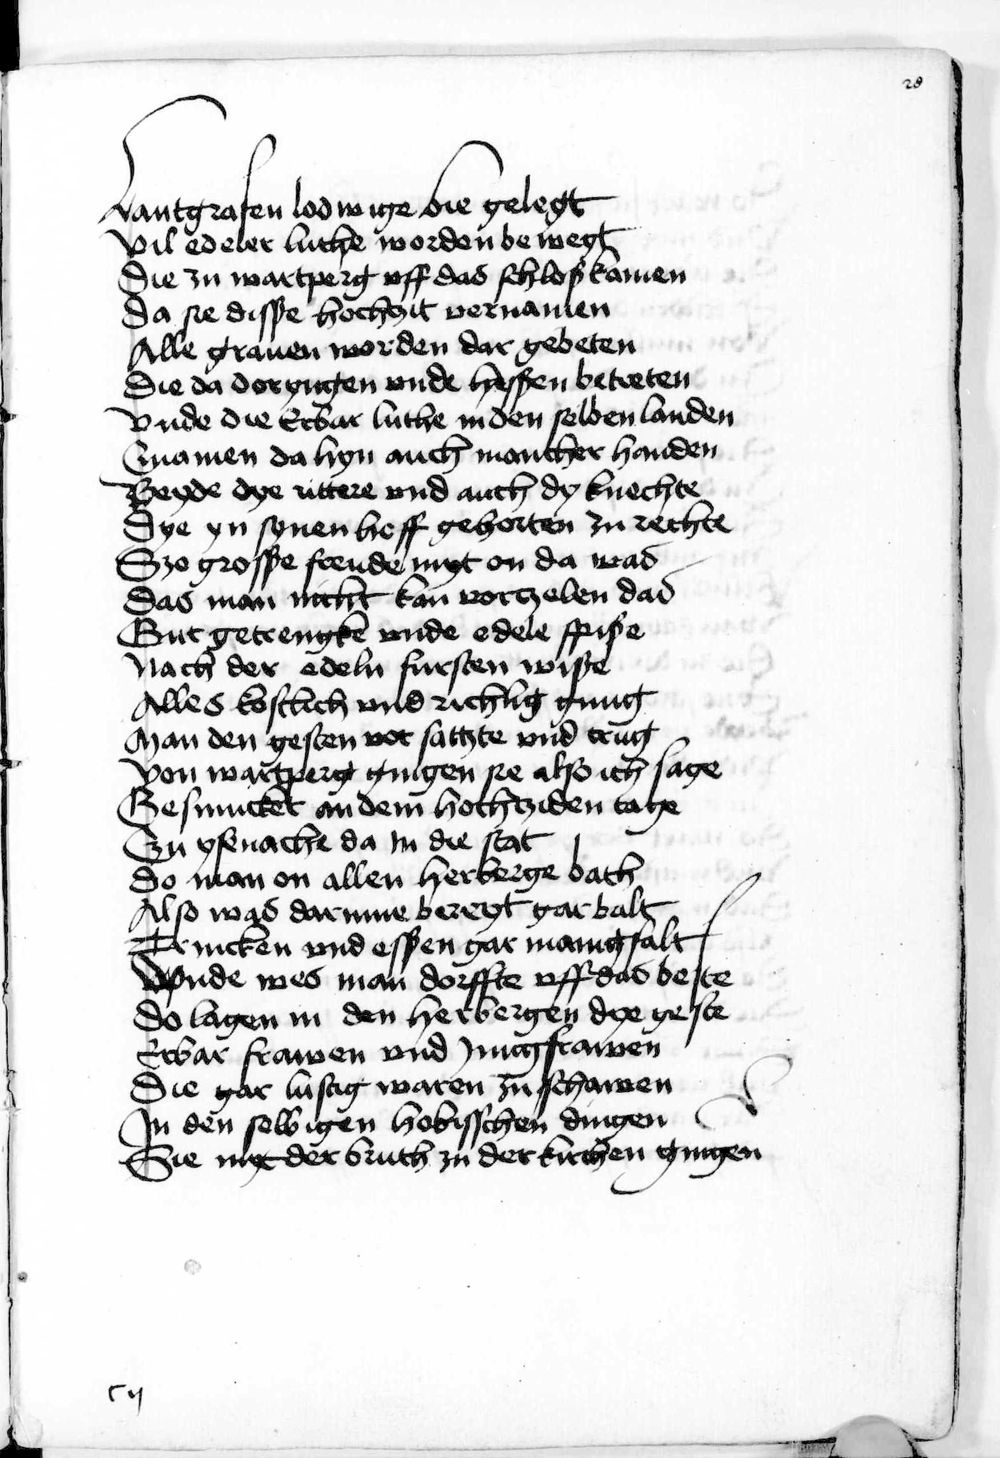 28
Lantgrafen lodwige bie gelegt
Vil edeler luthe worden bewegt
Die zu wartperg vff das schloß kamen
Da sie disße hochzit vernamen
Alle grauen worden dar gebeten
Die da doryngen vnde hesßen betreten
Vnde die Erbar luthe in den selben landen
Quamen da hyn auch mancher handen
Beyde dye rittere vnd auch dy knechte
Dye yn synen hoff gehorten zu rechte
Szo grosße freude myt on da was
Das man nicht kan vortzelen das
Gut getrengke vnde edele spiße
Nach der edeln fursten wiße
Alles kostlich vnd richlig gnug
Man den gesten vor satzte vnd trug
Von wartperg gingen sie also ich sage
Gesmucket an dem hochtziden tage
Zu ysenache da In die stat
Do man on allen herberge bath
Also was darinne bereyt gar balt
Trincken vnd esßen gar manigfalt
Wnde wes man dorffte vff das beste
Do lagen in den herbergen dye geste
Erbar frawen vnd Jungfrawen
Die gar lustig waren zu schawen
In den selbigen hobisschen dingen
Sie myt der bruth zu der kirchen gingen